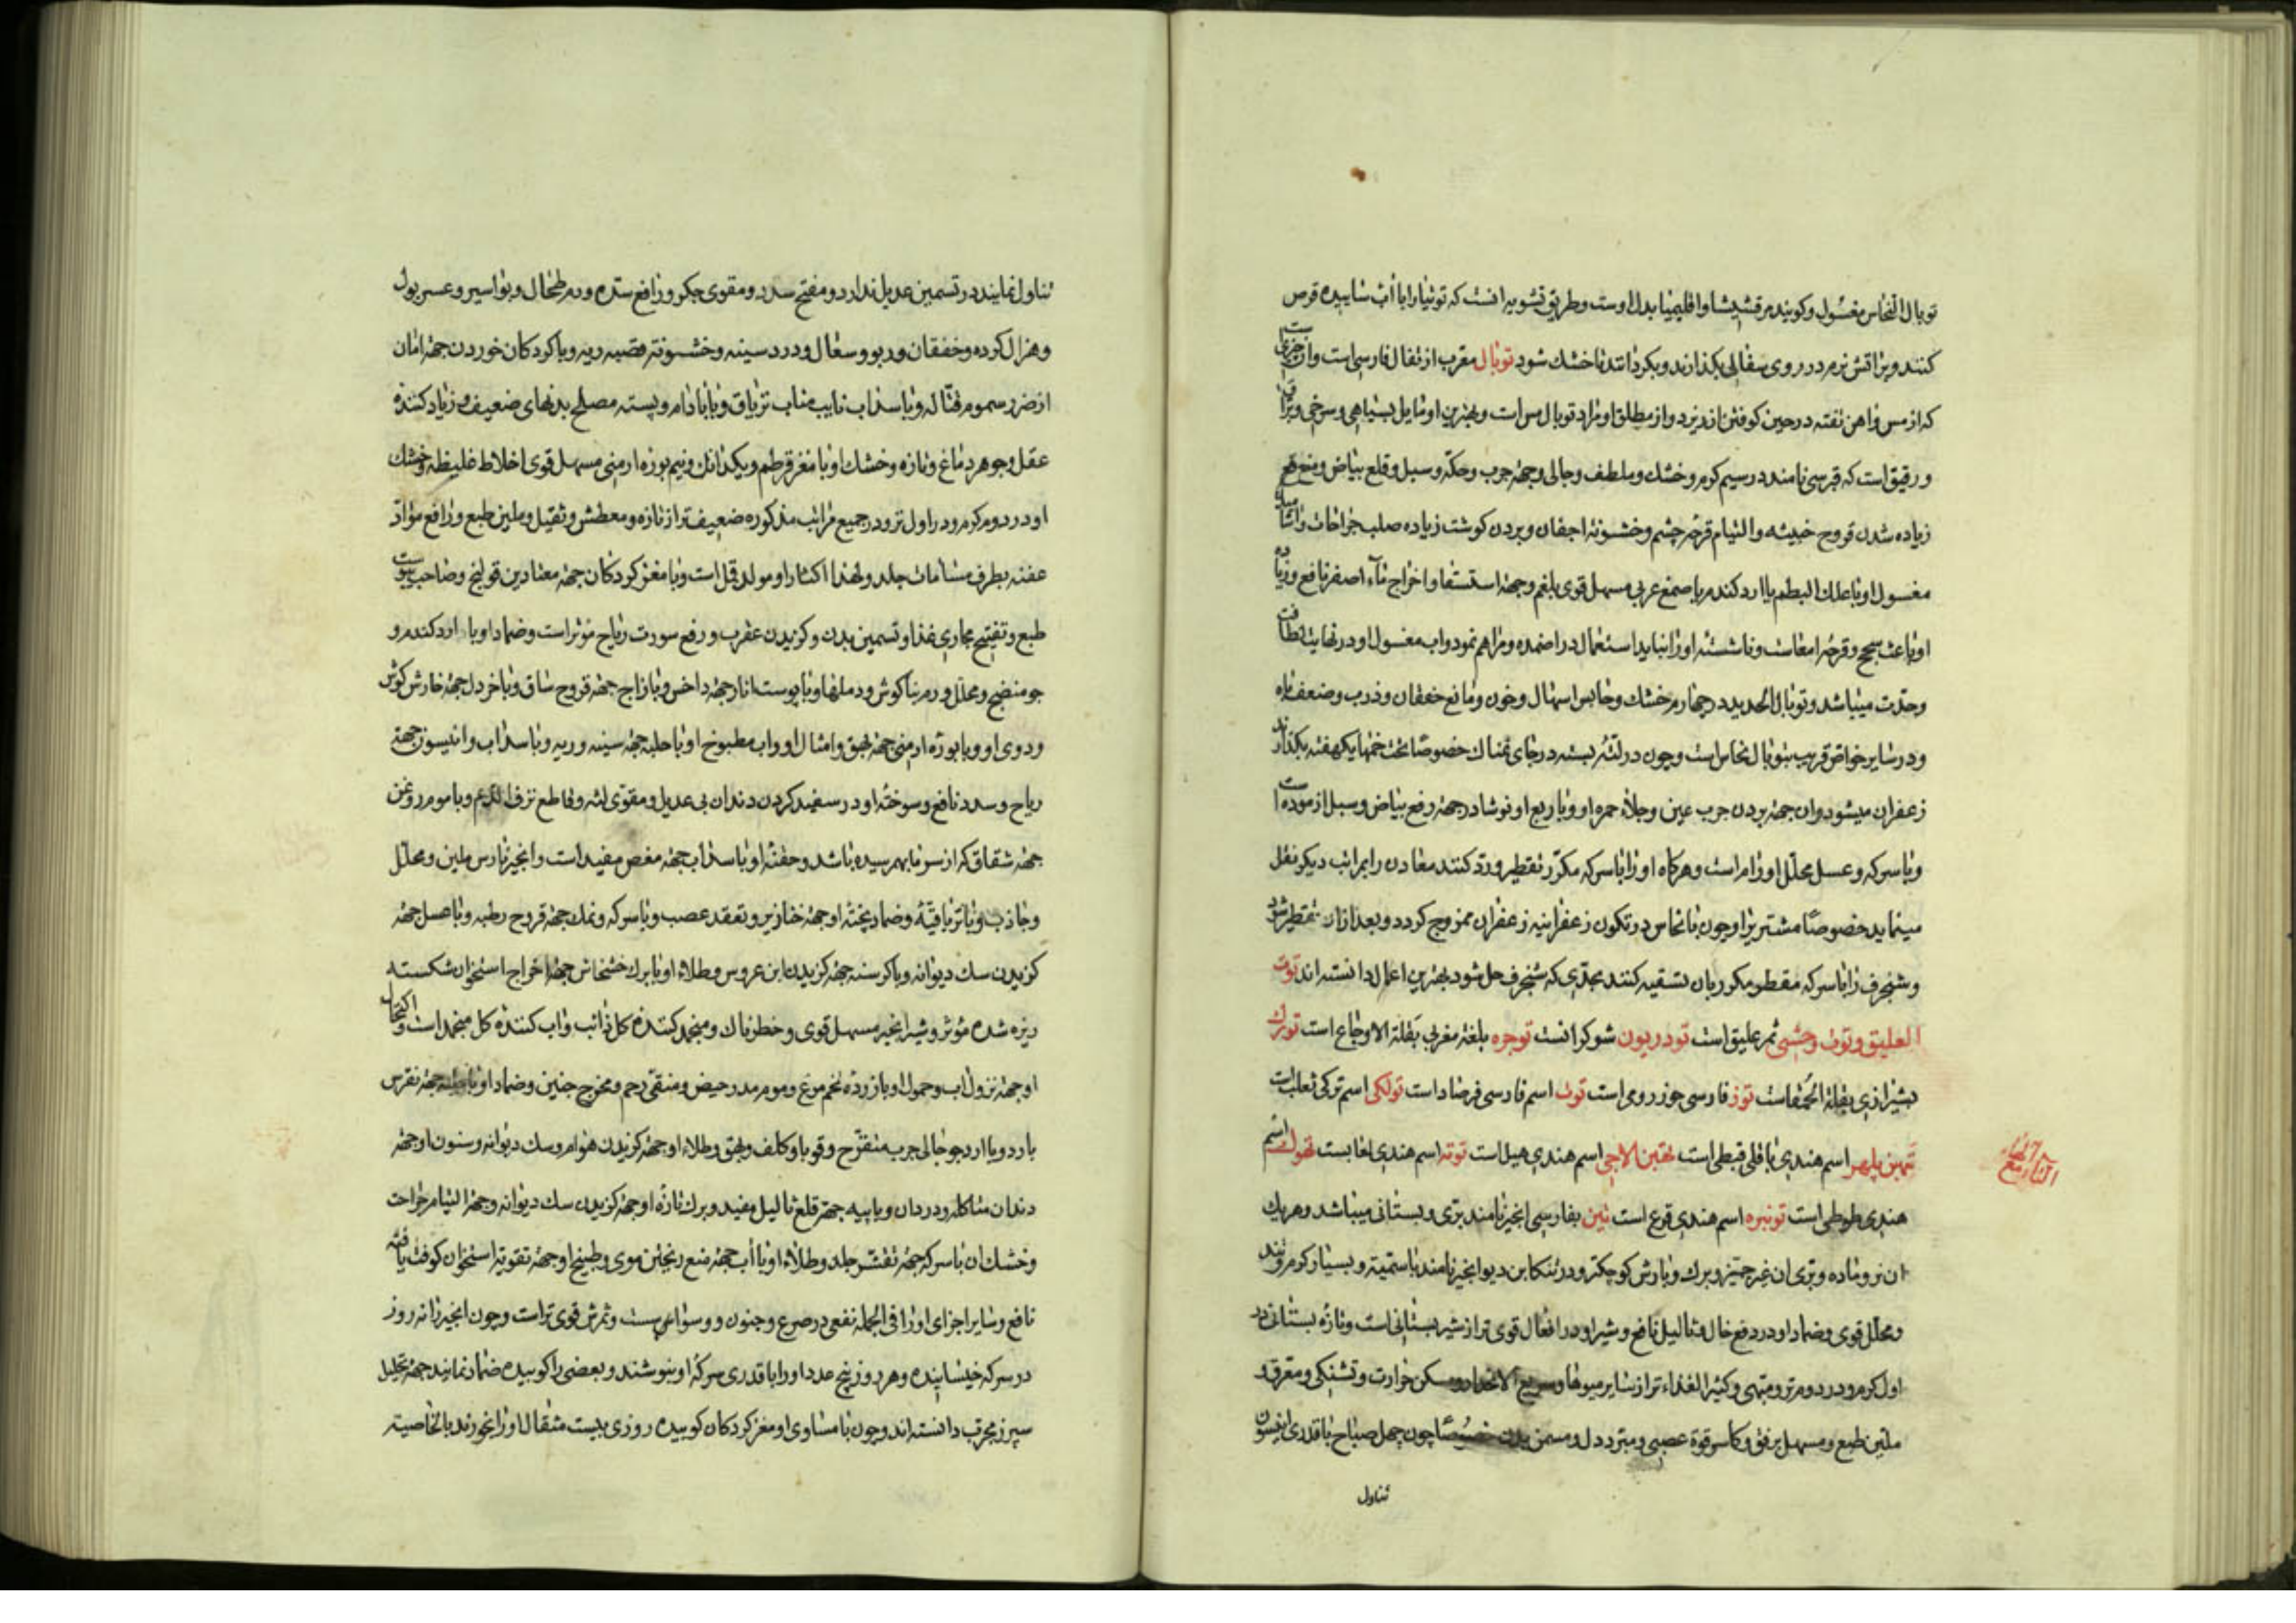 توبال النحاس مغسول وکویند مرقشیشا واقلیمیا بدل اوست وطریق تشویه انست که توتیا را با آب سائیده قرص
کنند وبر اتش نرم در روی سفالی بکذارند وبکردانند تا خشک شود توبال معرب از تفال فارسی است وان
که از مس واهن تفته در حین کوفتن از ریزد واز مطلق او مراد توبال مس است وبهترین او مایل بسیاهی وسرخی وبراق
ورقیق است که قبرسی نامند در سیم کرم وخشک وملطف وجالی وجهة جرب وحکه وسبل وقلع بیاض ومنع
زیاده شدن قروح خبیثه والتیام قرحۀ چشم وخشونة اجفان وبردن کوشت زیاده صلب جراحات واشامیدن
مغسول او با علک البطم یا ارد کندم یا صمغ عربی مسهل قوی بلغم وجهة استسقا واخراج ماء اصفر نافع وزیاده
او باعث سحج وقرحۀ امعاست وناشسته او را نباید استعمال در اضمده ومراهم نمود واب مغسول او در نهایت لطافت
وحدت میباشد وتوبال الحدید در چهارم خشک وحابس اسهال وخون ومانع خفقان وذرب وضعف باه
ودر سایر خواص قریب بتوبال نحاس است وچون در لتۀ بسته در جای نمناک خصوصا تحت خمها یکهفته بکذارند
زعفران میشود وان جهة بردن جرب عین وجلاء حمره او وبا ربع او نوشادر جهة رفع بیاض وسبل ازموده است
وبا سرکه وعسل محلل اورام است وهرکاه او را با سرکه مکرر تقطیر ورد کنند معادن را بمراتب دیکر نقل
مینماید خصوصا مشتری را وچون با نحاس در تکون زعفرانیه زعفران ممزوج کردد وبعد از ان تقطیر شود
وشنجرف را با سرکه مقطر مکرر بان تسقیه کنند بحدی که شنجرف حل شود بهترین اعمال دانسته اند توت
العلیق وتوت وحشی ثمر علیق است تودریون شوکرانست توجره بلغة مغربی بقلة الاوجاع است تورک
بشیرازی بقلة الحمقاست توز فارسی جوز رومی است توث اسم فارسی فرصاد است تولکی اسم ترکی ثعلب است
اسم هندی باقلی قبطی است اسم هندی هیل است توته اسم هندی لعابست اسم
هندی طوطی است تونبره اسم هندی قرع است تین بفارسی انجیر نامند بری وبستانی میباشد وهر یک
ان نر وماده وبری ان غیر جمیز وبرک وبارش کوچکتر ودر تنکابن دیو انجیر نامند باسمیته وبسیار کرم وتند
ومحلل قوی وضماد او در دفع خال وثالیل نافع وشیر او در افعال قوی تر از شیر بستانی است وتازه بستانی در
اول کرم ودر دوم تر ومبهی وکثیر الغذاء تر از سایر میوها وسریع الانحدار ومسکن حرارت وتشنکی ومعرق و
ملین طبع ومسهل برفق وکاسر قوة عصبی ومبرد دل ومسمن بدن خصوصا چون چهل صباح با قدری انیسون
تناول
تناول نمایند در تسمین عدیل ندارد ومفتح سدد ومقوی جکر ورافع سده ودرم طحال وبواسیر وعسر بول
وهزال کرده وخفقان وربو وسعال ودرد سینه وخشونة قصبه ریه وبا کردکان خوردن جهة امان
از ضرر سموم قتاله وبا سداب نایب مناب تریاق وبا بادام وپسته مصلح بدنهای ضعیف وزیاد کننده
عقل وجوهر دماغ وتازه وخشک او با مغز قرطم ویکدانک ونیم بوره ارمنی مسهل قوی اخلاط غلیظه وخشک
او در دوم کرم ودر اول تر ودر جمیع مراتب مذکوره ضعیف تر از تازه ومعطش وثقیل وملین طبع ورافع مواد
عفنه بطرف مسامات جلد ولهذا اکثار او مولد قمل است وبا مغز کردکان جهة معتادین قولنج وصاحب یبوست
طبع وتفتیح مجاری غذا وتسمین بدن وکزیدن عقرب ورفع سورت ریاح مؤثر است وضماد او با ارد کندم و
جو منضج ومحلل ورم بناکوش ودملها وبا پوست انار جهة داخس وبا زاج جهة قروح ساق وبا خردل جهة خارش کوش
ودوی او وبا بوره ارمنی جهة بهق وامثال او واب مطبوخ او با حلبه جهة سینه وریه وبا سداب وانیسون جهة
ریاح وسدد نافع وسوختۀ او در سفید کردن دندان بی عدیل ومقوی لثه وقاطع نزف الدم وبا موم روغن
جهة شقاق که از سرما بهم رسیده باشد وحقنۀ او با سداب جهة مغص مفید است وانجیر نارس ملین ومحلل
وجاذب وبا تریاقیة وضماد پختۀ او جهة خنازیر وتعقد عصب وبا سرکه ونمک جهة قروح رطبه وبا عسل جهة
کزیدن سک دیوانه وبا کرسنه جهة کزیدن ابن عروس وطلاء او با برک خشخاش جهة اخراج استخوان شکسته
ریزه شده مؤثر وشیر انجیر مسهل قوی وخطرناک ومنجمد کننده کل ذائب واب کننده کل منجمد است واکتحال
او جهة نزول اب وحمول او با زرده تخم مرغ وموم مدر حیض ومنقی رحم ومخرج جنین وضماد او با حلبه جهة نقرس
بارد وبا ارد جو جالی جرب متقرح وقوبا وکلف وبهق وطلاء او جهة کزیدن هوام وسک دیوانه وسنون او جهة
دندان متاکله ودرد ان وبا پیه جهة قلع ثالیل مفید وبرک تازه او جهة کزیدن سک دیوانه وجهة التیام جراحت
وخشک ان با سرکه جهة تقشر جلد وطلاء او با آب جهة منع ریختن موی وطبیخ او جهة تقویة استخوان کوفت یافته
نافع وسایر اجزای او را فی الجمله نفعی در صرع وجنون ووسواس هست وثمرش قوی تر است وچون انجیر را نه روز
در سرکه خیسانیده وهر روز پنج عدد او را با قدری سرکۀ او بنوشند وبعضی را کوبیده ضماد نمایند جهة تحلیل
سپرز مجرب دانسته اند وچون با مساوی او مغز کردکان کوبیده روزی بیست مثقال او را بخورند بالخاصیة